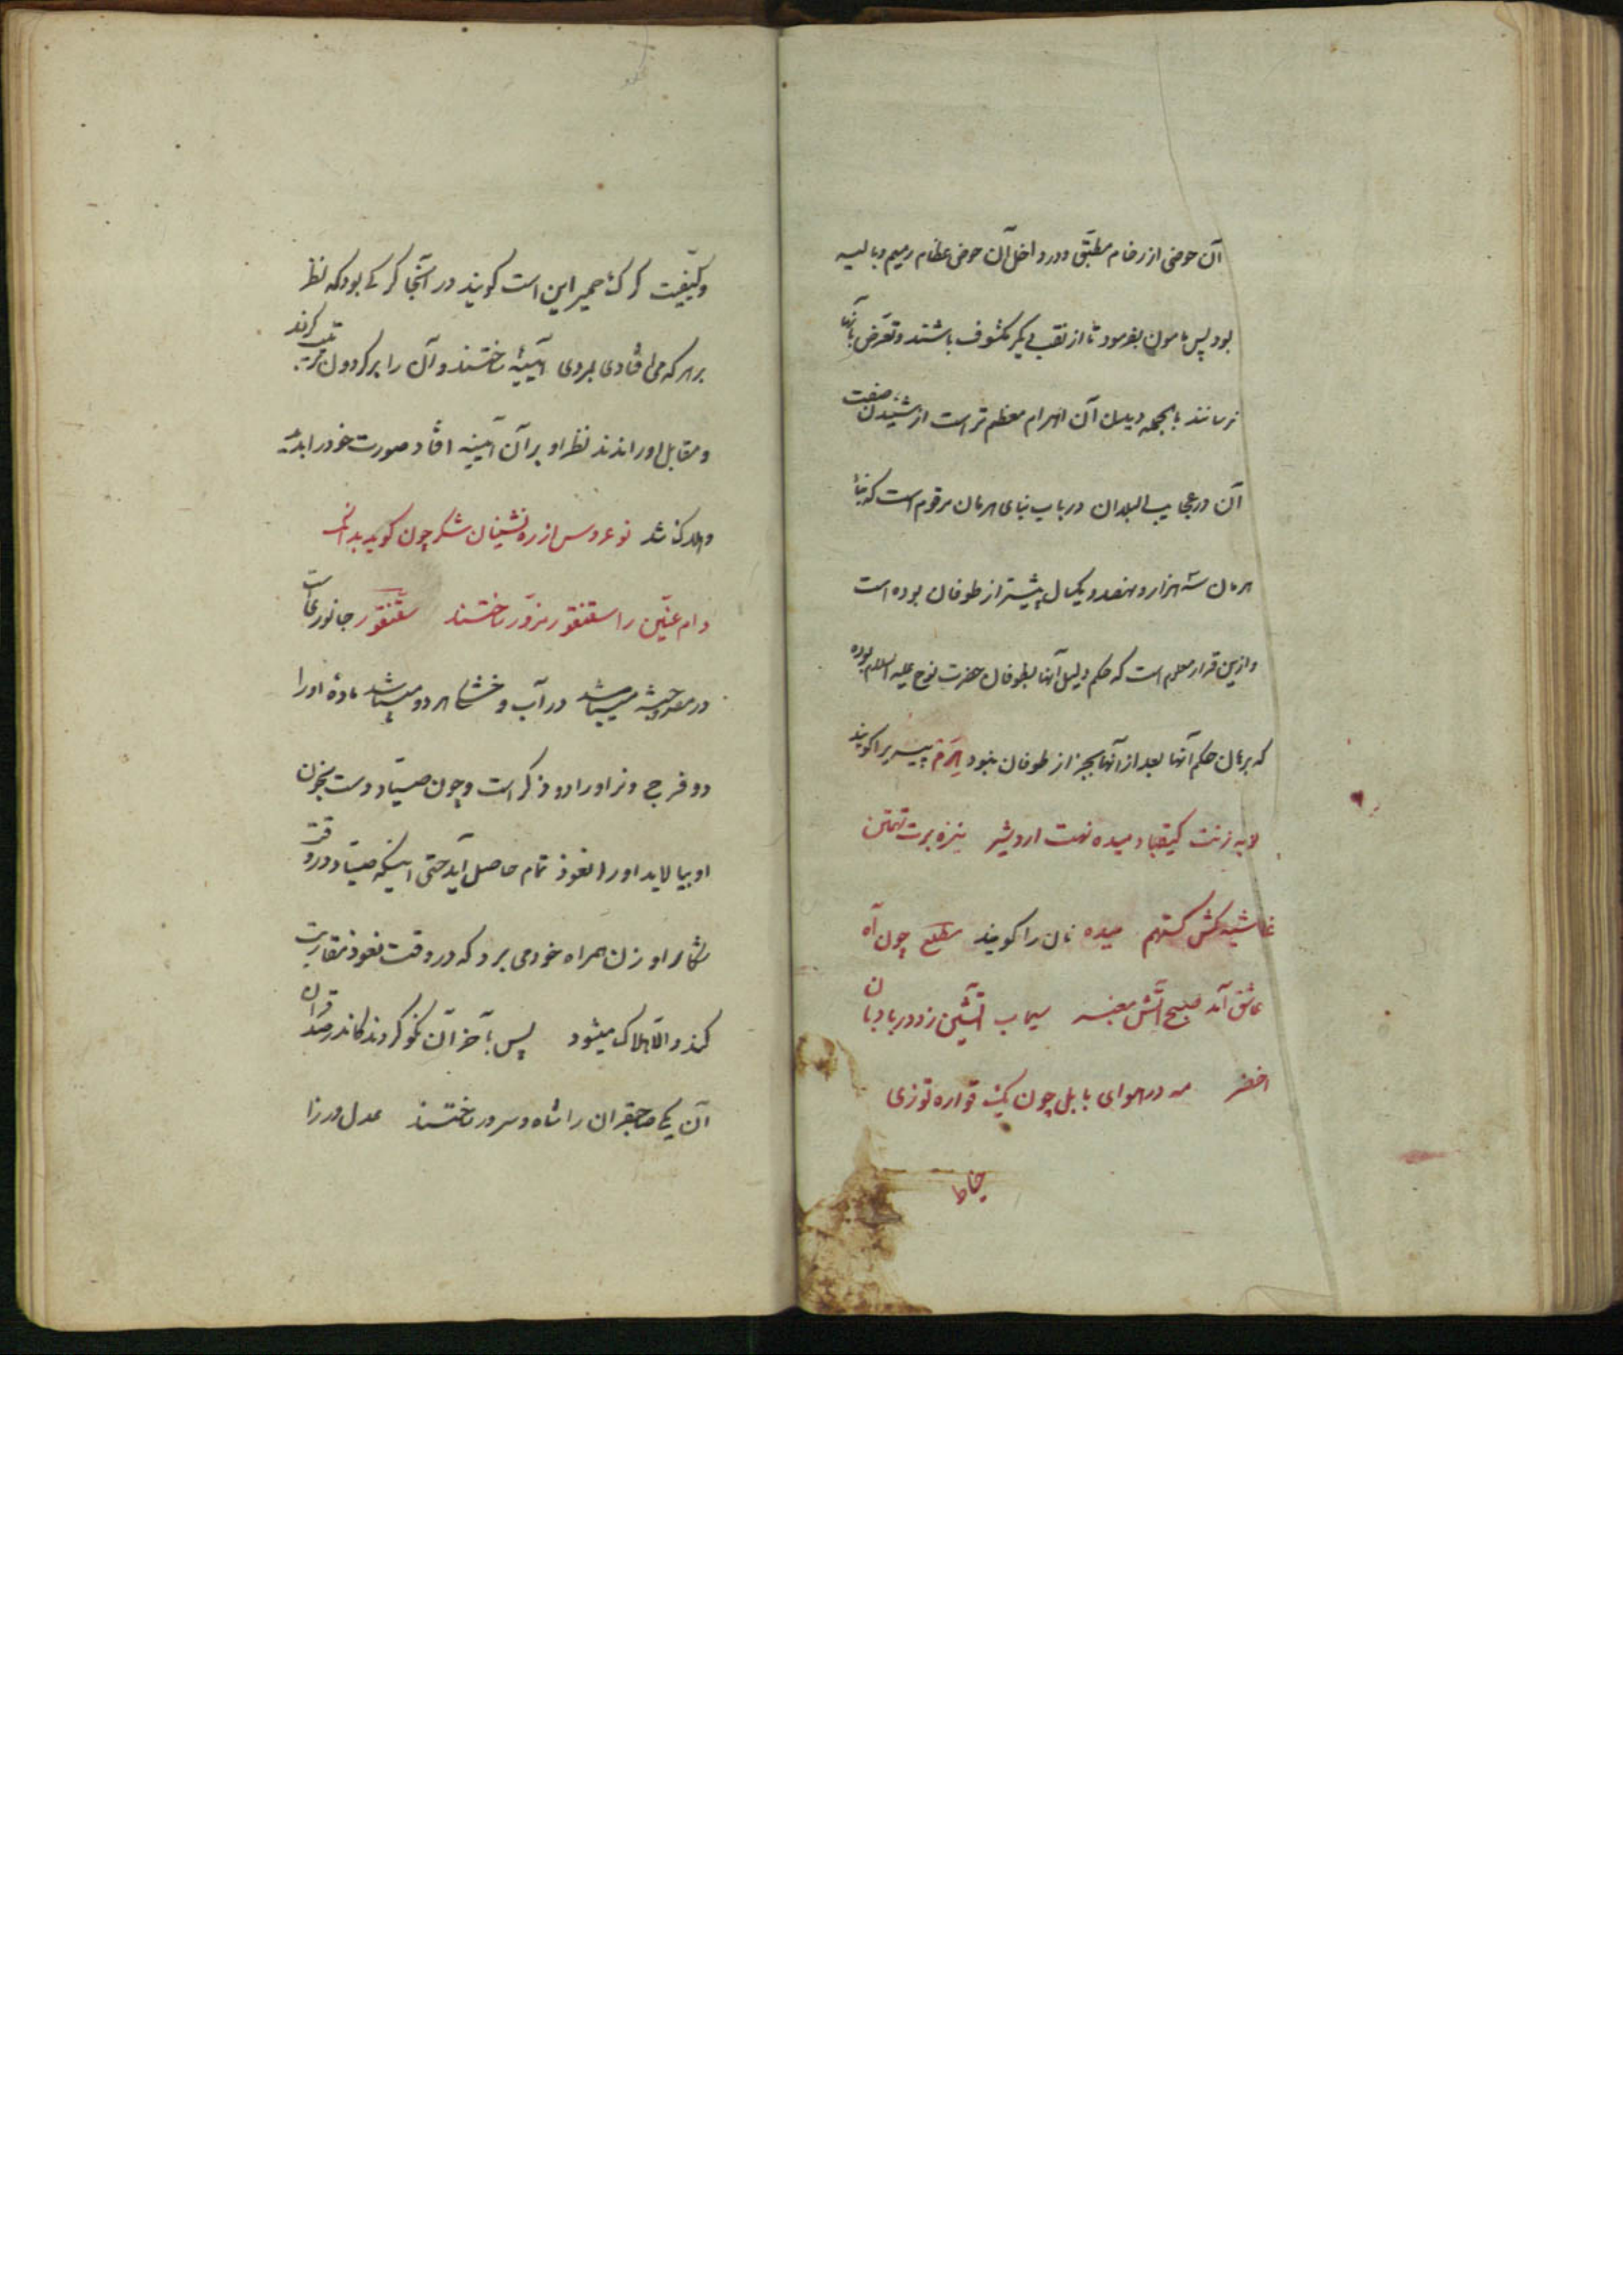 آن حوضی از رخام مطبّق و در داخل آن حوض عظام رمیم و بالیه
بود پس مامون بفرمود تا از نقب دیگر مکشوف باشند و تعرّض بآنها
نرسانند بالجمله دیدن آن اهرام معظم تر است از شنیدن صفت
آن در عجایب البلدان در باب بنای هرمان مرقوم است که بنأ
هرمان سه هزار و هفصد و یکسال پیشتر از طوفان بوده است
و ازین قرار معلوم است که حکم دلیل آنها بطوفان حضرت نوح علیه السلام بوده
که برمان حکم آنها بعد از آنها بجز از طوفان نبود هَرَم پیر را کویند
لابه زنت کیقباد میده نهت اردشیر نیزه برت تهمتن
غاشیه کش کستهم میده نان را کویند مطلع چون آه
عاشق آمد صبح آتش معنبر سیماب آتشین زد در بادبان
اخضر مه در هوای بابل چون یک قواره توزی
خاط
و کیفیّت کرک حمیر این است کویند در آنجا کرکی بود که نظر
بر هر که می افتادی بمردی آیینهٔ ساختند و آن را بر کردون ترتیب کردند
و مقابل او راندند نظر او بر آن آیینه افتاد صورت خود را بدید
و هلاک شد نو عروس از ره نشینان شکر چون کوید بدانک
دام عنّین را سقنقور مزوّر ساختند سقنقور جانوریست
در مصر و حبشه میباشد در آب و خشکی هر دو میباشد مادهٔ او را
دو فرج و نر او را دو ذکر است و چون صیّاد دست بخون
او بیالاید او را نعوذ تمام حاصل آید حتی اینکه صیّاد در وقت
شکار او زن همراه خود می برد که در وقت نعوذ مقاربت
کند و الّا هلاک میشود پس بآخر آن نکو کردند کاندر صد قران
آن یکی صاحبقران را شاه و سرور ساختند عدل ورزا